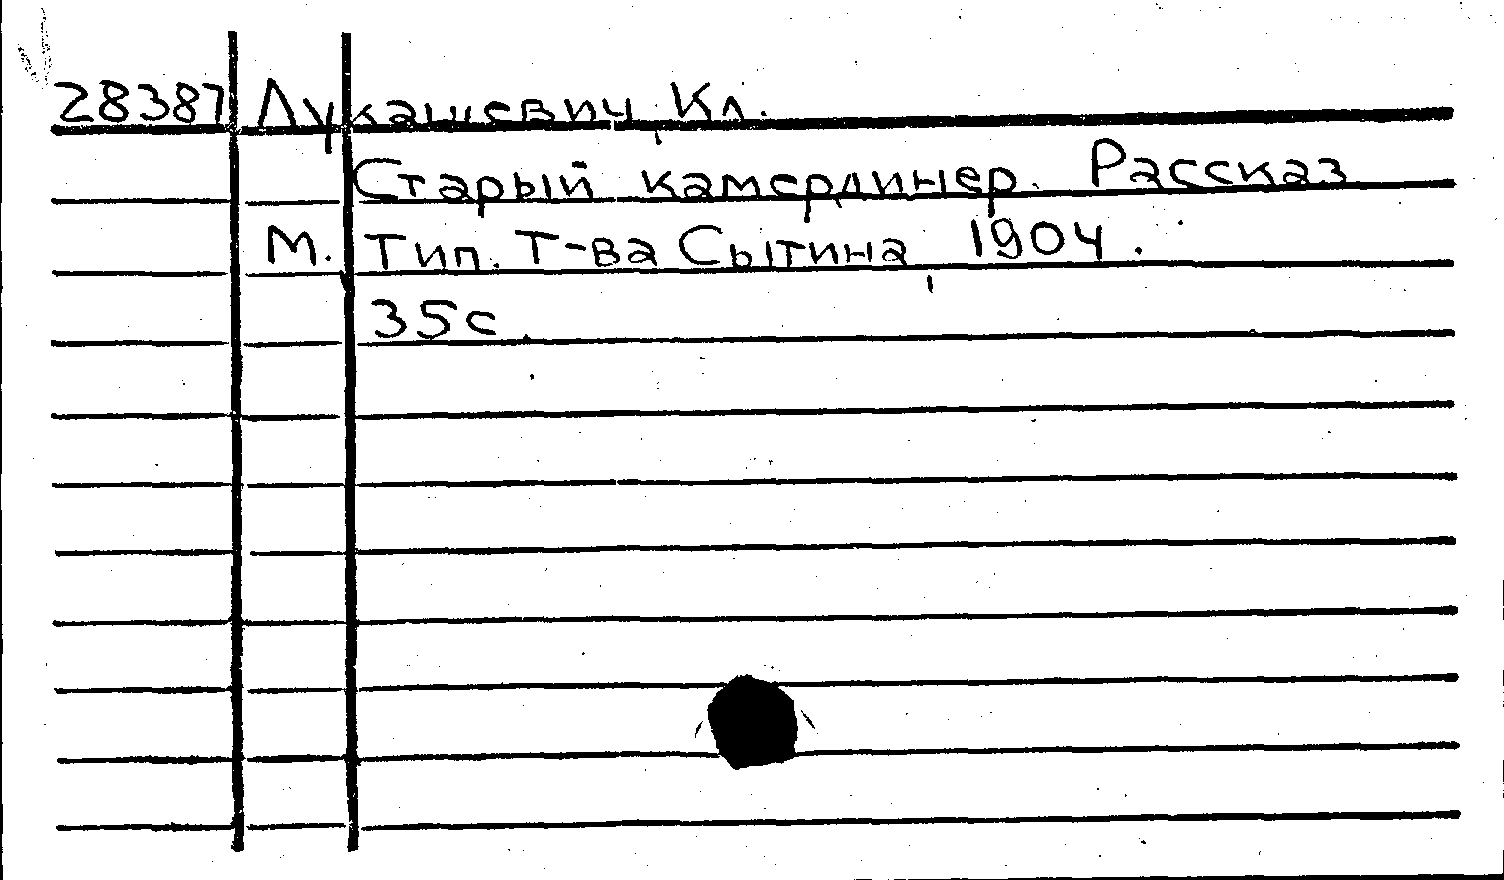 28387 Лукашевич, Кл.
Старый камердинер. Рассказ
М. Тип. Т-ва Сытина, 1904.
35с.